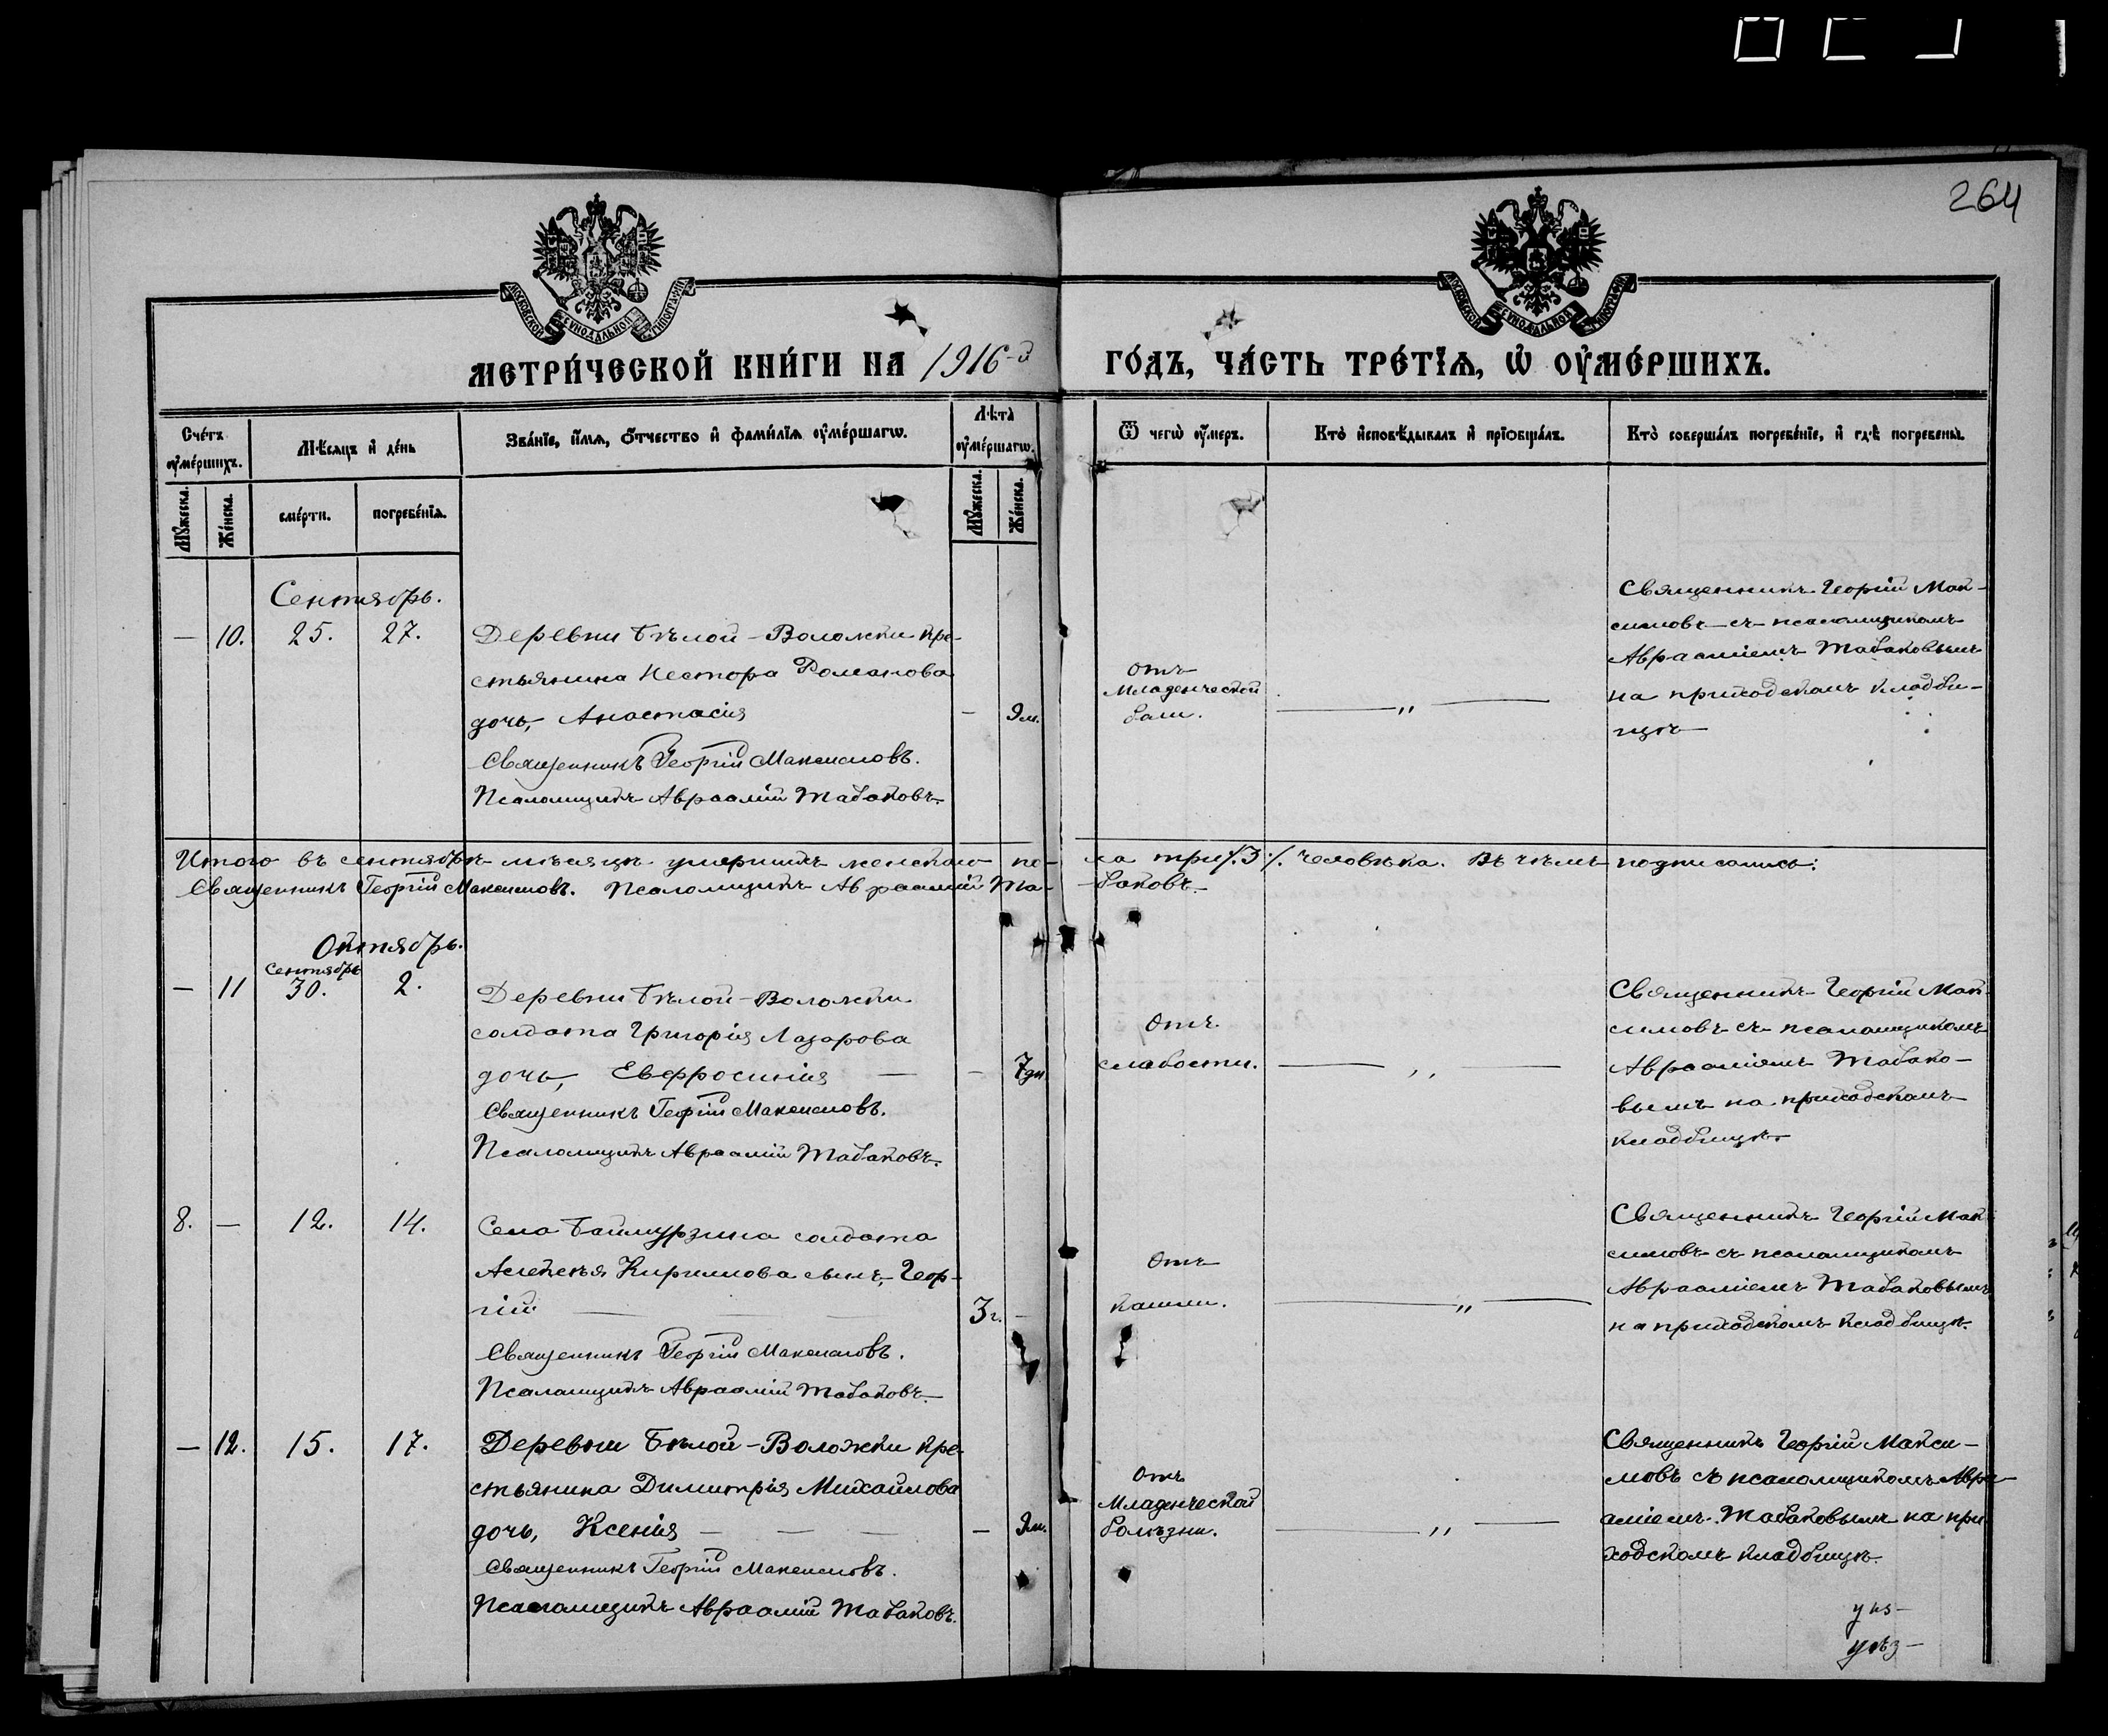 264
МОСКОВСКОЙ СѴНОДАЛЬНОЙ ТИПОГРАФІИ
МОСКОВСКОЙ СѴНОДАЛЬНОЙ ТИПОГРАФІИ
МЕТРИ́ЧЕСКОЙ КНИ́ГИ НА 1916-й ГО́ДЪ, ЧА́СТЬ ТРЕ́ТЇѦ, Ѡ҆ ОУ҆МЕ́РШИХЪ.
Сче́тъ оу҆ме́ршихъ.
Мꙋ́жеска.
Же́нска.
Мѣ́сяцъ и҆ де́нь
сме́рти.
погребе́нїѧ.
Зва́нїе, и҆́мѧ, ѻ҆́тчество и҆ фами́лїѧ оу҆ме́ршагѡ.
Лѣ́та оу҆ме́ршагѡ.
Мꙋ́жеска.
Же́нска.
Ѿ чегѡ̀ оу҆́меръ.
Кто̀ и҆сповѣ́дывалъ и҆ прїѡбща́лъ.
Кто̀ соверша́лъ погребе́нїе, и҆ гдѣ̀ погребены̀.
Сентябрь.
— 10. 25. 27.
Деревни Бѣлой-Воложки кре-
стьянина Нестора Романова
дочь, Анастасія — 9 м.
Священникъ Георгій Максимовъ.
Псаломщикъ Авраамій Табаковъ.
отъ
младенческой
бол.
— „ —
Священникъ Георгій Мак-
симовъ съ псаломщикомъ
Аврааміемъ Табаковымъ
на приходскомъ кладби-
щѣ
Итого въ сентябрѣ мѣсяцѣ умершихъ женскаго по-
ла три /.3./. человѣка. Въ чемъ подписались:
Священникъ Георгій Максимовъ. Псаломщикъ Авраамій Та-
баковъ.
Октябрь.
Сентябрь
— 11 30. 2.
Деревни Бѣлой-Воложки
солдата Григорія Лазарова
дочь, Евфросинія — — 7 дн.
Священникъ Георгій Максимовъ.
Псаломщикъ Авраамій Табаковъ.
Отъ
слабости.
— „ —
Священникъ Георгій Мак-
симовъ съ псаломщикомъ
Аврааміемъ Табако-
вымъ на приходскомъ
кладбищѣ.
8. — 12. 14.
Села Баймурзина солдата
Алексѣя Кириллова сынъ, Геор-
гій — — — 3 г. —
Священникъ Георгій Максимовъ.
Псаломщикъ Авраамій Табаковъ.
Отъ
кашли.
— „ —
Священникъ Георгій Мак-
симовъ съ псаломщикомъ
Аврааміемъ Табаковымъ
на приходскомъ кладбищѣ.
— 12. 15. 17.
Деревни Бѣлой-Воложки кре-
стьянина Димитрія Михайлова
дочь, Ксенія — — — — 9 м.
Священникъ Георгій Максимовъ.
Псаломщикъ Авраамій Табаковъ.
Отъ
младенческой
болѣзни.
— „ —
Священникъ Георгій Макси-
мовъ съ псаломщикомъ Авра-
аміемъ Табаковымъ на при-
ходскомъ кладбищѣ.